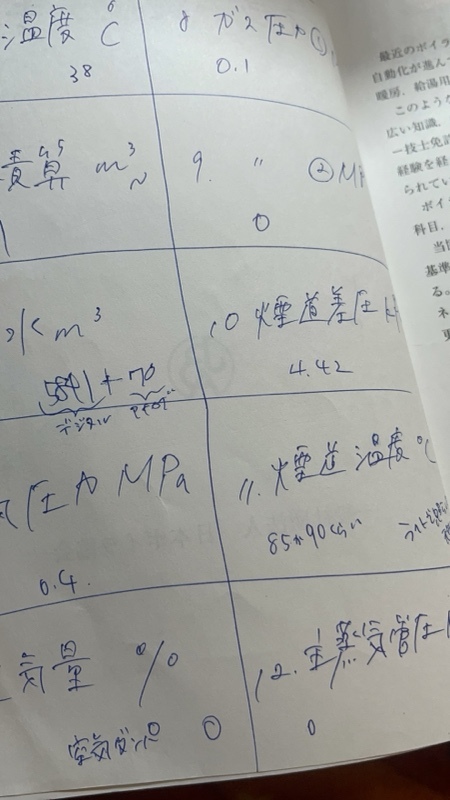 温度 ℃
38
8 ガス圧力①
0.1
責算 m³N
9. 〃 ② MP
0
水 m³
5891+70
デジタル アナログ
10 煙道差圧 k
4.42
気圧力 MPa
0.4.
11. 煙道温度 ℃
85か90くらい
気量 %
空気ダンパ 0
12. 主蒸気管圧
0
最近のボイラ
自動化が進ん
暖房，給湯用
このような
広い知識，
一技士免許
経験を経
られてい
ボイラ
科目，
当
基準
る。
ネ
更